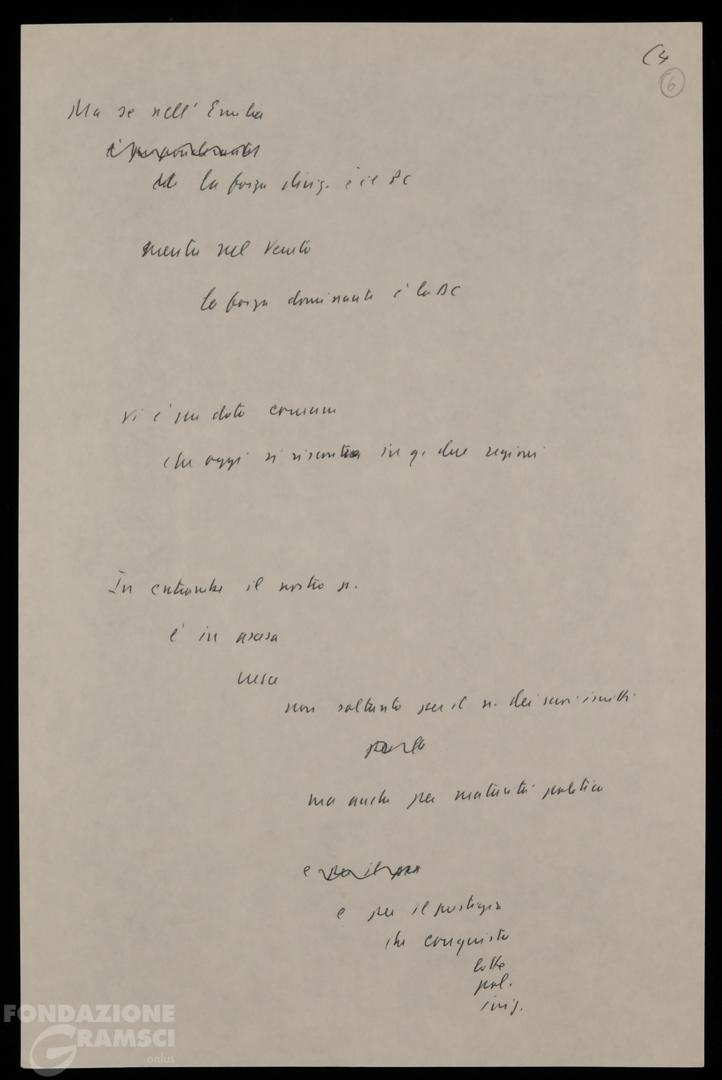 (4
6
Ma se nell'Emilia
la forza dirig. è il PC
mentre nel Veneto
la forza dominante è la DC
Vi è un dato comune
che oggi si riscontra in q. due regioni
In entrambe il nostro p.
è in ascesa
non soltanto per il n. dei suoi iscritti
ma anche per maturità politica
e
e per il prestigio
che conquista
lotte
pol.
FONDAZIONE
GRAMSCI
onlus